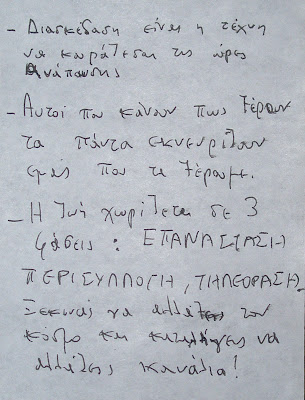 - Διασκέδαση είναι η τέχνη
να κουράζεσαι τις ώρες
Ανάπαυσης
- Αυτοί που κάνουν πως ξέρουν
τα πάντα εκνευρίζουν
εμάς που τα ξέρουμε.
- Η ζωή χωρίζεται σε 3
φάσεις: ΕΠΑΝΑΣΤΑΣΗ
ΠΕΡΙΣΥΛΛΟΓΗ, ΤΗΛΕΟΡΑΣΗ
Ξεκινάς να αλλάξεις τον
κόσμο και καταλήγεις να
αλλάζεις κανάλια!